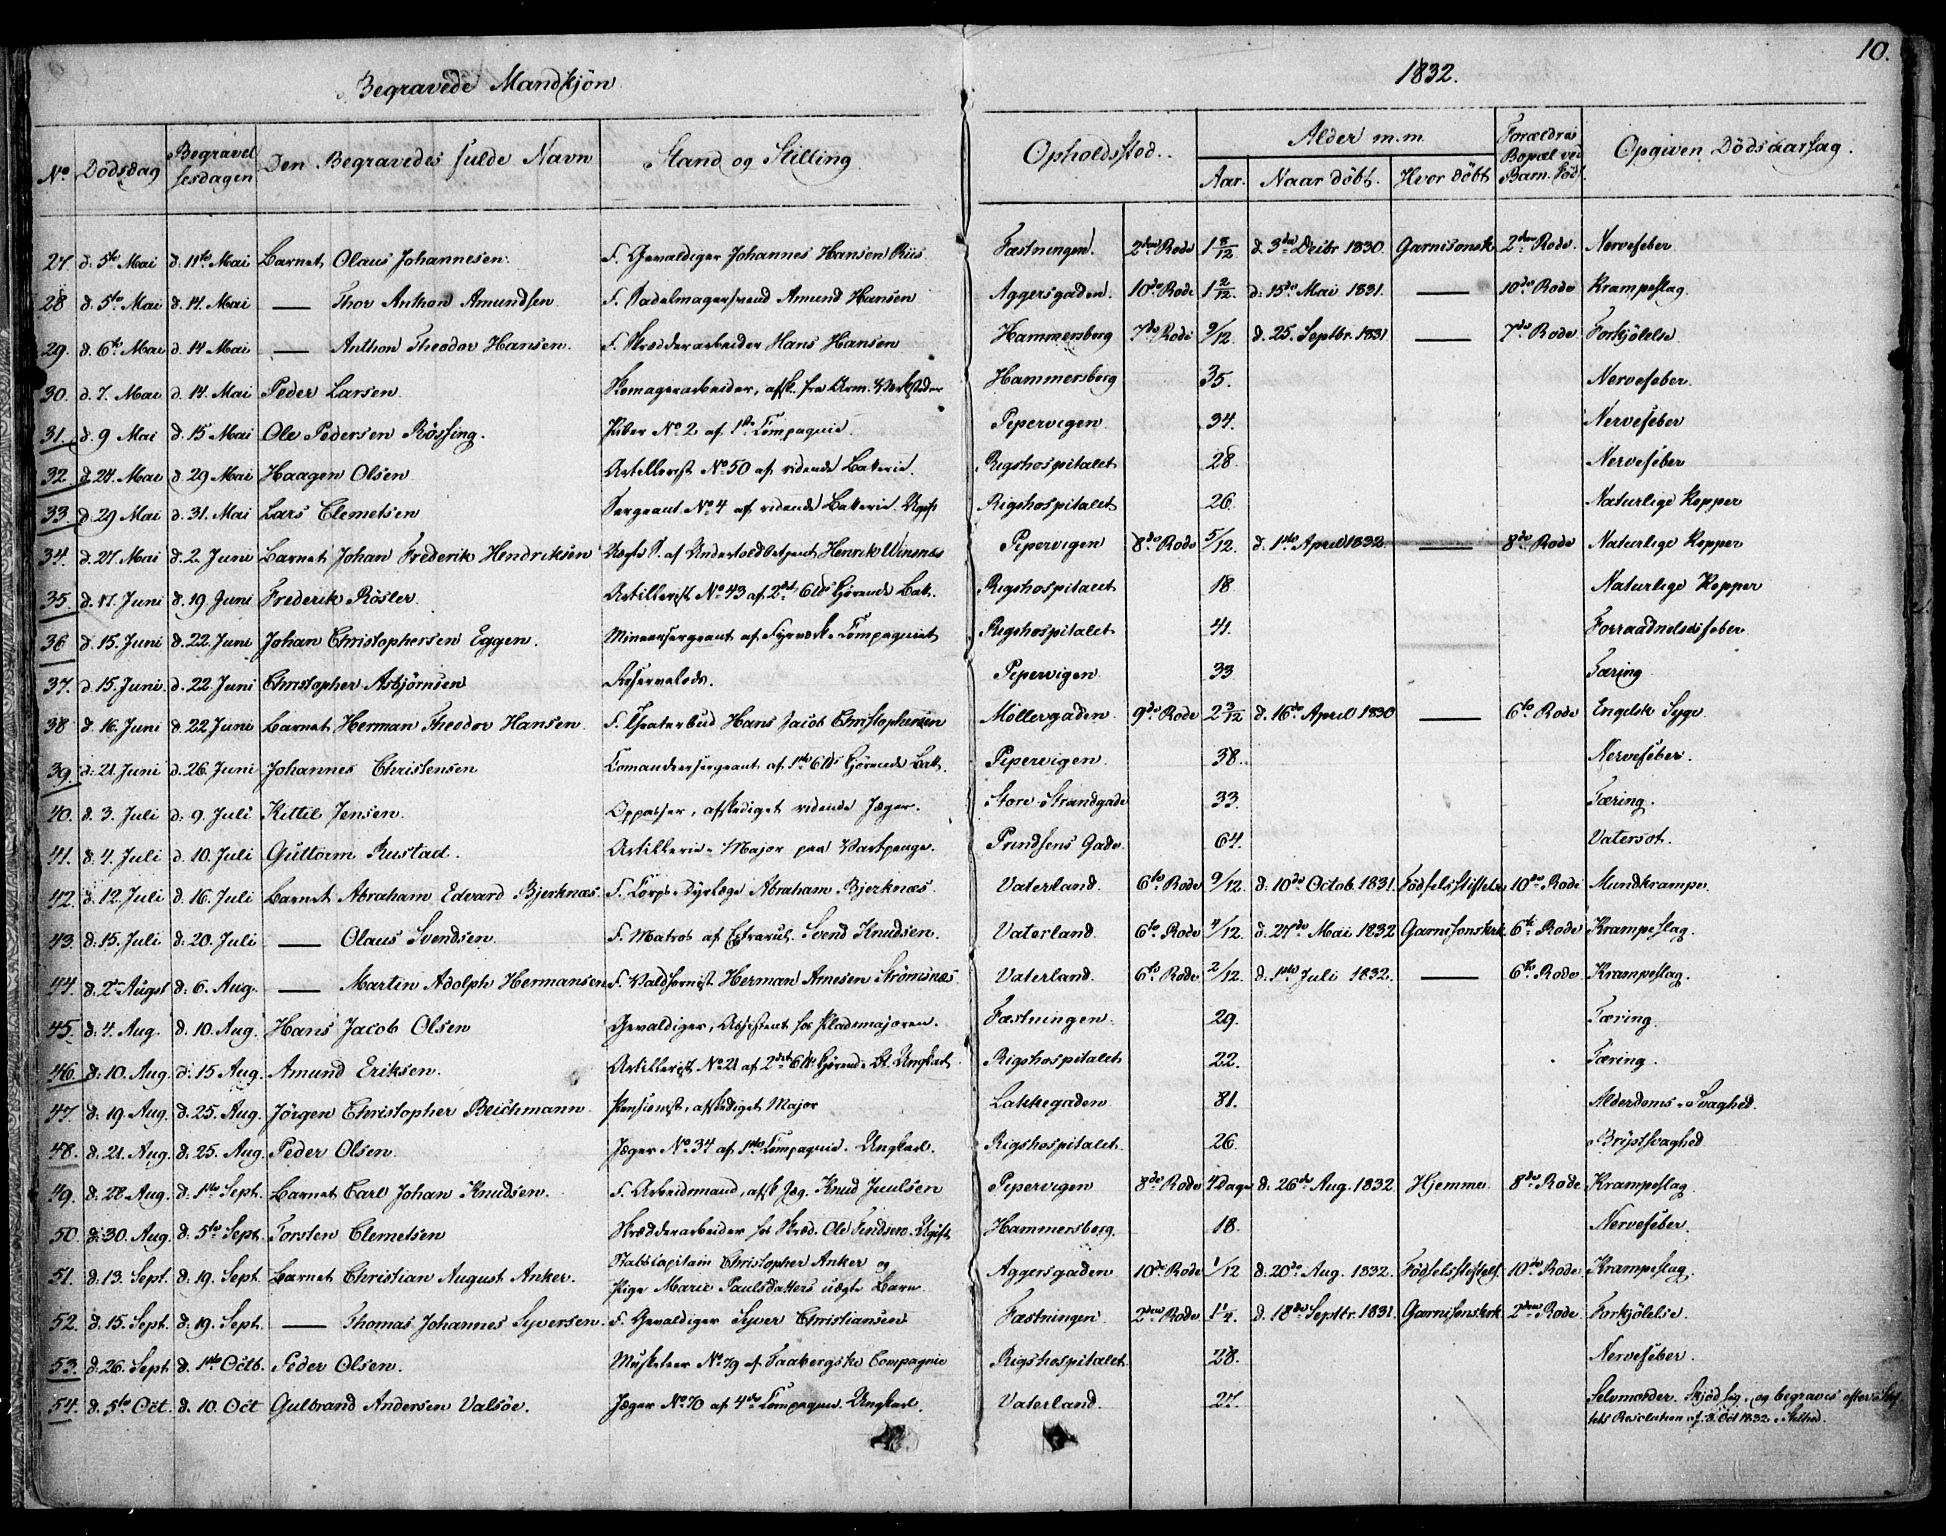 10.
Begravede Mandkjön 1832.
No Dödsdag Begravelsesdagen Den Begravedes fulde Navn Stand og Stilling Opholdssted. Alder m.m. Forældres Bopæl ved Barn. Föds. Opgiven Dödsaarsag.
Aar. Naar döbt. Hvor döbt
27 d. 5te Mai d. 11te Mai Barnet Olaus Johannesen F. Gevaldiger Johannes Hansen Riis Fæstningen. 2den Rode 1 8/12 d. 3die Decbr 1830 Garnisonsk 2den Rode. Nervefeber
28 d. 5te Mai d. 14. Mai — Thor Anthon Amundsen F. Sadelmagersvend Amund Hansen Aggersgaden. 10de Rode 1 2/12. d. 15de Mai 1831. — 10de Rode Krampeslag.
29. d. 6te Mai d. 14 Mai — Anthon Theodor Hansen. F. Skrædderarbeider Hans Hansen Hammersberg 7de Rode 9/12. d. 25. Septbr. 1831. — 7de Rode Forkjölelse
30. d. 7. Mai d. 14. Mai Peder Larsen Skomagerarbeider, afsk. fra Arm. Verksteder Hammersberg 35. Nervefeber.
31. d. 9 Mai d. 15 Mai Ole Pedersen Rössing. No 2 af 1ste Compagnie. Pipervigen. 34. Nervefeber
32. d. 24. Mai d. 29 Mai Haagen Olsen Artillerist No 50 af ridende Batterie. Rigshospitalet 28. Nervefeber
33. d. 29 Mai d. 31. Mai Lars Clemetsen Sergeant No 4 af ridende Batterie. Ugift Rigshospitalet 26. Naturlige Kopper
34. d. 27. Mai d. 2. Juni Barnet Johan Frederik Hendriksen Uægte S. af Undertoldbetjent Henrik Winsnes Pipervigen 8de Rode 5/12. d. 1ste April 1832. — 8de Rode Naturlige Kopper
35. d. 17. Juni d. 19 Juni Frederik Rösler. Artillerist No 43 af 2det 6tds kjörende Bat. Rigshospitalet 18 Naturlige Kopper
36 d. 15. Juni d. 22. Juni Johan Christophersen Eggen. Mineersergeant af Fyrværk. Compagniet Rigshospitalet 41. Forraadnelsesfeber
37. d. 15. Juni. d. 22 Juni Christopher Asbjörnsen Pipervigen 33 Tæring
38 d. 16. Juni d. 22 Juni Barnet Herman Theodor Hansen. F. Theaterbud Hans Jacob Christophersen Möllergaden. 9de Rode 2 3/12 d. 16de April 1830 — 6te Rode Engelsk Syge
39. d. 21 Juni d. 26. Juni Johannes Christensen Comandeersergeant af 1ste 6tds kjörende Bat. Pipervigen. 38. Nervefeber.
40. d. 3. Juli d. 9. Juli Kittil Jensen. Oppasser, afskediget ridende Jæger. Store Strandgade 33. Tæring.
41. d. 4. Juli d. 10. Juli Guttorm Rustad. Artillerie-Major paa Vartpenge. Prindsens Gade 64. Vatersot.
42. d. 12. Juli d. 16. Juli Barnet Abraham Edvard Bjerknæs. F. Corps-Dyrlæge Abraham Bjerknæs Vaterland. 6te Rode 9/12. d. 10de Octob. 1831. Födselsstiftelse 10de Rode Mundkrampe.
43. d. 15. Juli d. 20. Juli — Olaus Svendsen. F. Matros af Extrarul. Svend Knudsen. Vaterland. 6te Rode 4/12. d. 27de Mai 1832 Garnisonskirk. 6te Rode Krampeslag.
44. d. 2den Augst d. 6. Aug. — Martin Adolph Hermansen F. Valdhornist Herman Arnesen Strömsnæs Vaterland. 6te Rode 2/12. d. 1ste Juli 1832. — 6te Rode Krampeslag.
45. d. 4. Aug. d. 10. Aug. Hans Jacob Olsen Gevaldiger, Assistent hos Pladsmajoren. Fæstningen. 29. Tæring.
46. d. 10. Aug. d. 15 Aug. Amund Eriksen. Artillerist No 21 af 2det 6tds kjörende Bt. Ungkarl Rigshospitalet. 22. Tæring.
47. d. 19. Aug. d. 25. Aug. Jörgen Christopher Beichmann. Pensionist, afskediget Major Lakkegaden 81. Alderdoms-Svaghed.
48. d. 21. Aug. d. 25. Aug. Peder Olsen. Jæger No 34 af 1ste Compagnie. Ungkarl. Rigshospitalet. 26. Brystsvaghed
49. d. 28. Aug. d. 1ste Sept. Barnet Carl Johan Knudsen. F. Arbeidsmand, afsk. Jæg. Knud Juulsen Pipervigen 8de Rode 4 Dage d. 26de Aug. 1832 Hjemme 8de Rode Krampeslag.
50. d. 30. Aug. d. 5te Sept. Torsten Clemetsen Skrædderarbeider hos Skræd. Ole Ugift. Hammersberg. 18. Nervefeber.
51. d. 13. Sept. d. 19. Sept. Barnet Christian August Anker. Stabscapitain Christopher Anker og Aggersgaden 10de Rode 1/12 d. 20de Aug. 1832. Födselsstiftels. 10de Rode Krampeslag.
Pige Marie Paulsdatters uægte Barn.
52. d. 15. Sept. d. 19. Sept. — Thomas Johannes Syversen. F. Gevaldiger Syver Christiansen Fæstningen 2den Rode 1 1/4. d. 18de Septbr. 1831. Garnisonskrk. 2den Rode Forkjölelse.
53. d. 26. Sept. d. 1ste Octb. Peder Olsen. Musketeer No 79 af Faabergske Compagnie Rigshospitalet 28. Nervefeber.
54. d. 5te Oct. d. 10. Oct Gulbrand Andersen Valsöe. Jæger No 70 af 4de Compagnie. Ungkarl. Vaterland. 27. Selvmorder. og begraves efter
Resolution af 8. Oct 1832 i Stilhed.